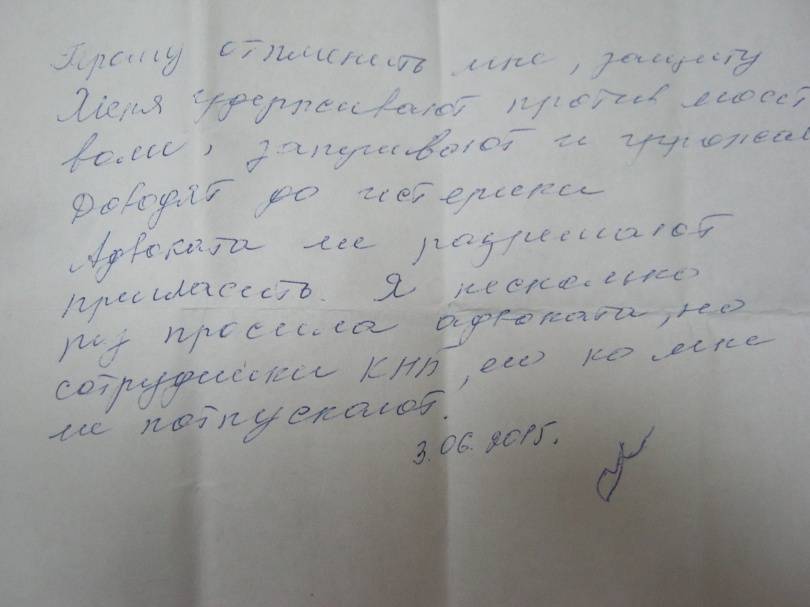 Прошу отпменить мне, защиту
Меня удерживают против моей
воли, запугивают и угрожают
Доводят до истерики
Адвоката не разрешают
пригласить. Я несколько
раз просила адвоката, но
сотрудники КНБ, его ко мне
не потпускают.
3.06.2015.